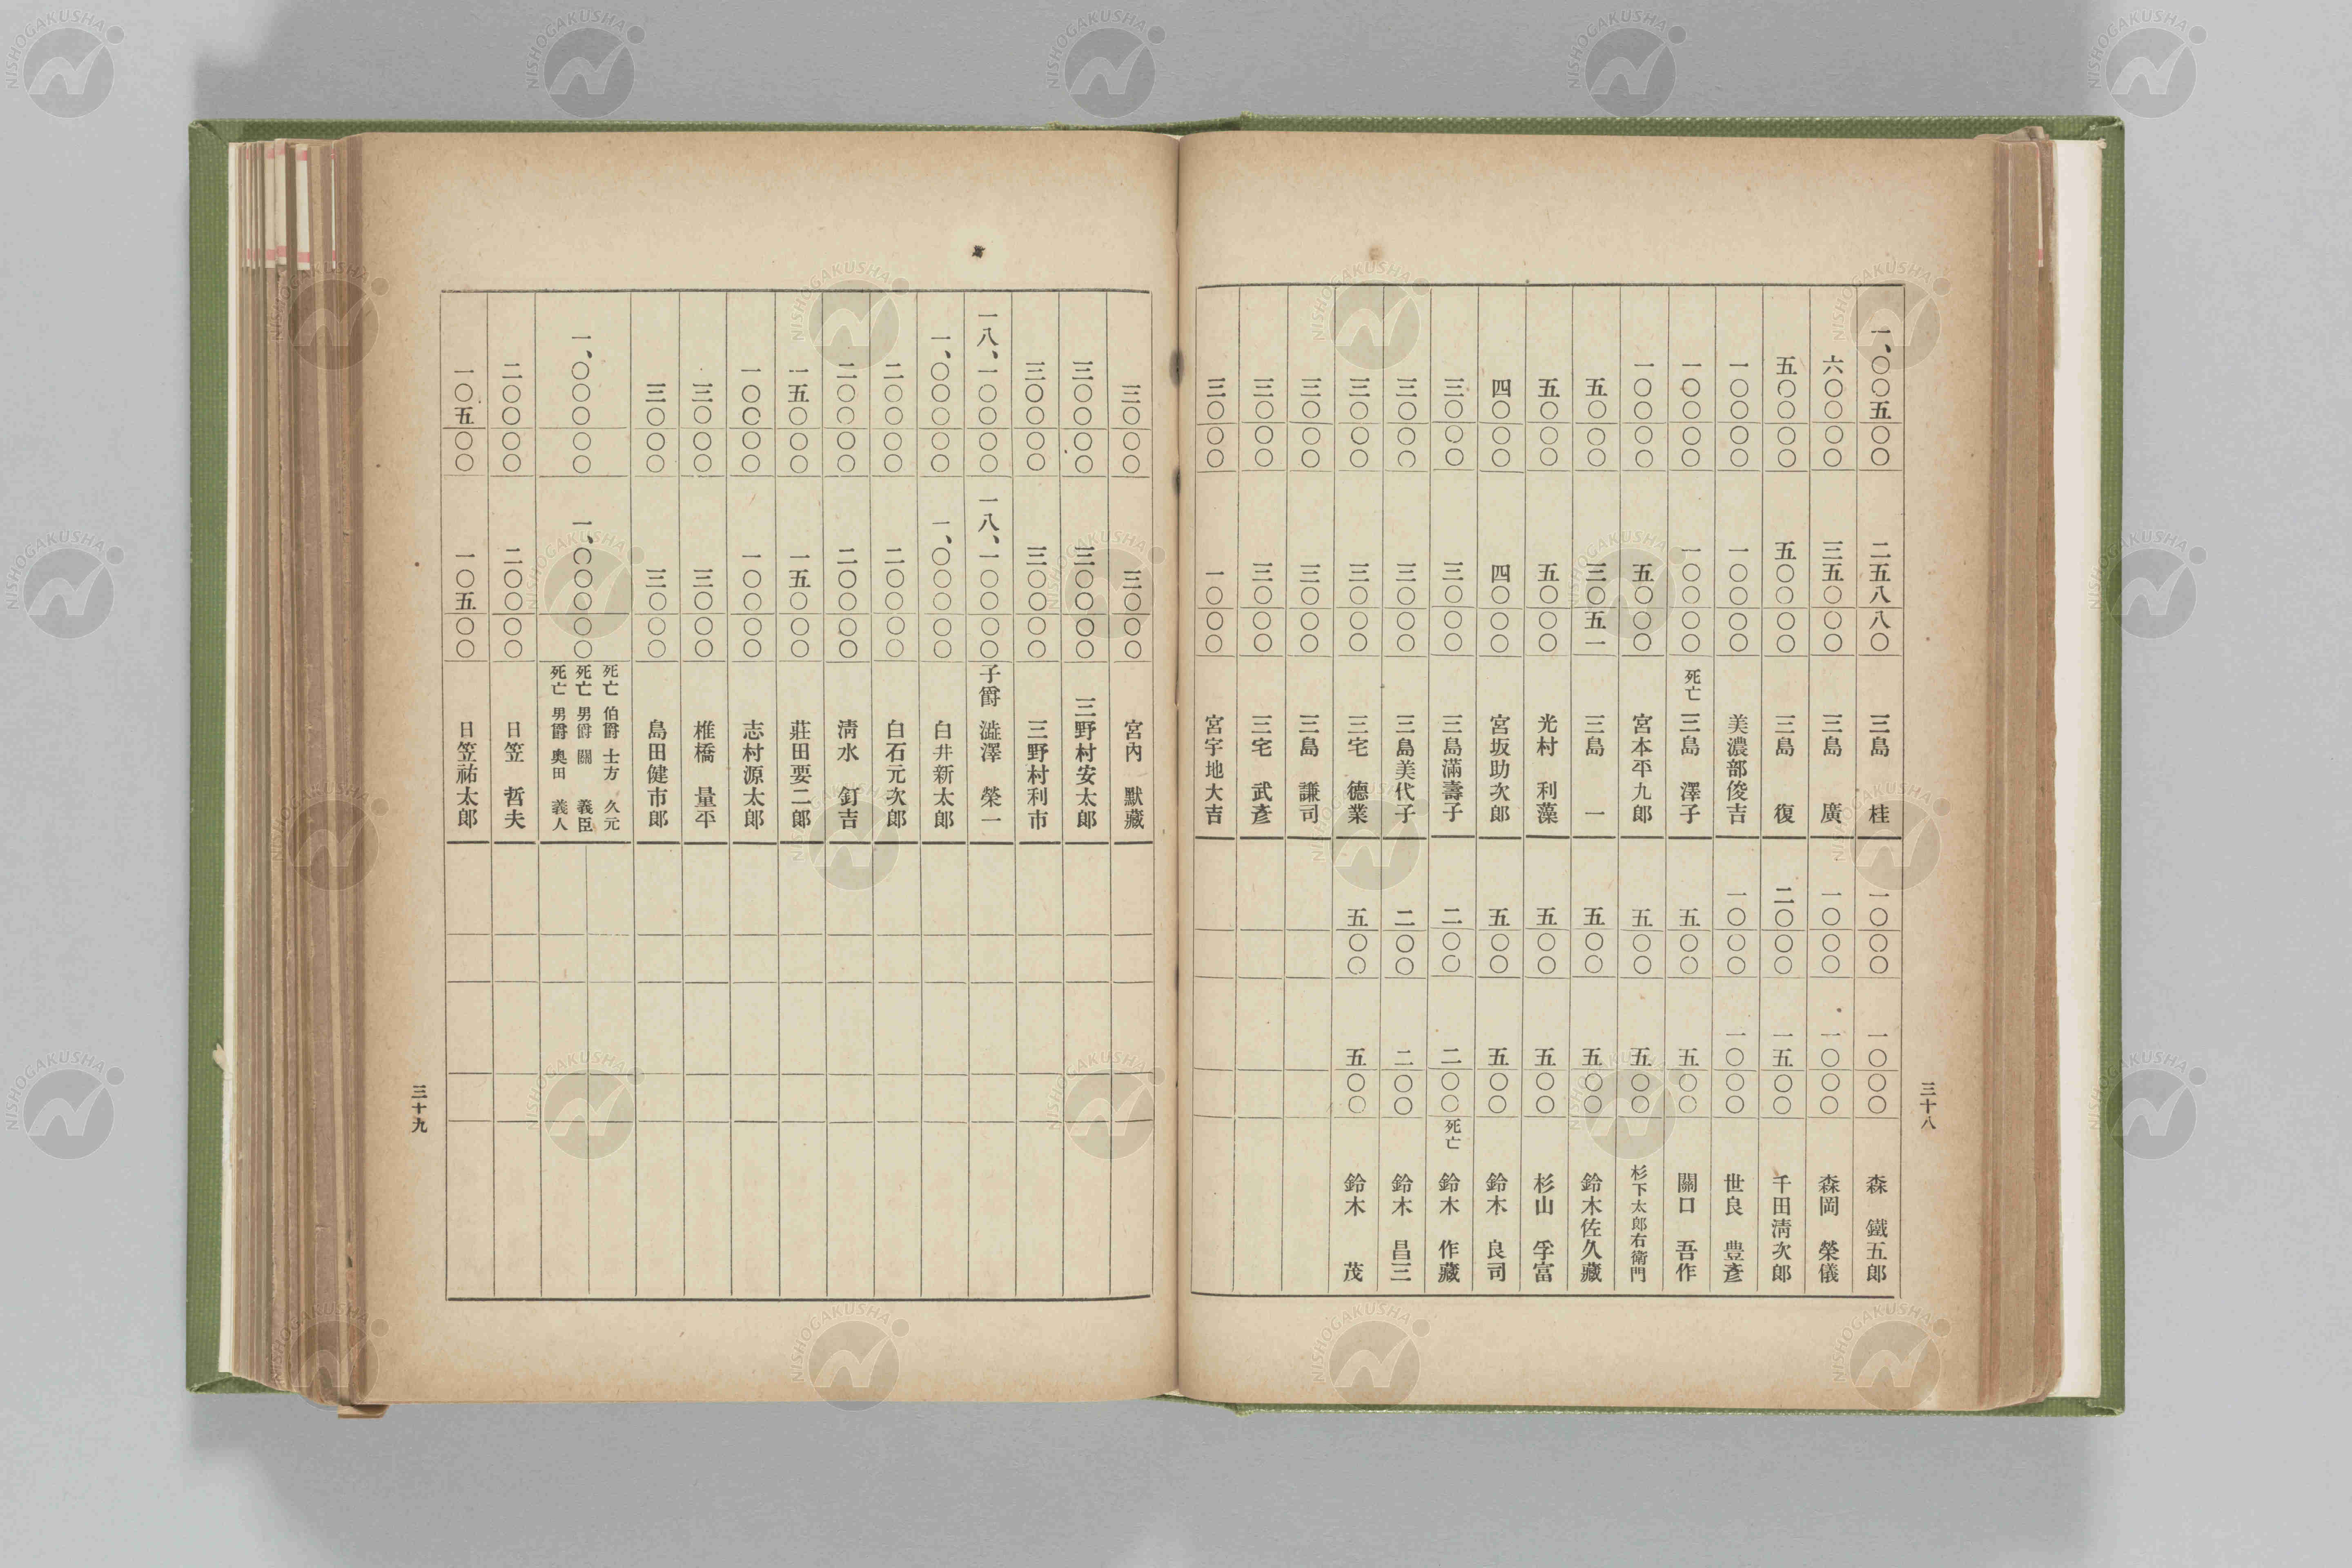 三十八
一、〇〇五〇〇 二五八八〇 三島 桂
六〇〇〇〇 三五〇〇〇 三島 廣
五〇〇〇〇 五〇〇〇〇 三島 復
一〇〇〇〇 一〇〇〇〇 美濃部俊吉
一〇〇〇〇 一〇〇〇〇 死亡 三島 澤子
一〇〇〇〇 五〇〇〇 宮本平九郎
五〇〇〇 三〇五一 三島 一
五〇〇〇 五〇〇〇 光村 利藻
四〇〇〇 四〇〇〇 宮坂助次郎
三〇〇〇 三〇〇〇 三島滿壽子
三〇〇〇 三〇〇〇 三島美代子
三〇〇〇 三〇〇〇 三宅 德業
三〇〇〇 三〇〇〇 三島 謙司
三〇〇〇 三〇〇〇 三宅 武彥
三〇〇〇 一〇〇〇 宮宇地大吉
一〇〇〇 一〇〇〇 森 鐵五郎
一〇〇〇 一〇〇〇 森岡 榮儀
二〇〇〇 一五〇〇 千田淸次郎
一〇〇〇 一〇〇〇 世良 豊彥
五〇〇 五〇〇 關口 吾作
五〇〇 五〇〇 杉下太郎右衛門
五〇〇 五〇〇 鈴木佐久藏
五〇〇 五〇〇 杉山 孚富
五〇〇 五〇〇 鈴木 良司
二〇〇 二〇〇 死亡 鈴木 作藏
二〇〇 二〇〇 鈴木 昌三
五〇〇 五〇〇 鈴木 茂
三〇〇〇 三〇〇〇 宮內 默藏
三〇〇〇〇 三〇〇〇〇 三野村安太郎
三〇〇〇〇 三〇〇〇〇 三野村利市
一八、一〇〇〇〇 一八、一〇〇〇〇 子爵 澁澤 榮一
一、〇〇〇〇〇 一、〇〇〇〇〇 白井新太郎
二〇〇〇〇 二〇〇〇〇 白石元次郎
二〇〇〇〇 二〇〇〇〇 淸水 釘吉
一五〇〇〇 一五〇〇〇 莊田要二郎
一〇〇〇〇 一〇〇〇〇 志村源太郎
三〇〇〇 三〇〇〇 椎橋 量平
三〇〇〇 三〇〇〇 島田健市郎
一、〇〇〇〇〇 一、〇〇〇〇〇
死亡 伯爵 土方 久元
死亡 男爵 關 義臣
死亡 男爵 奥田 義人
二〇〇〇〇 二〇〇〇〇 日笠 哲夫
一〇五〇〇 一〇五〇〇 日笠祐太郎
三十九